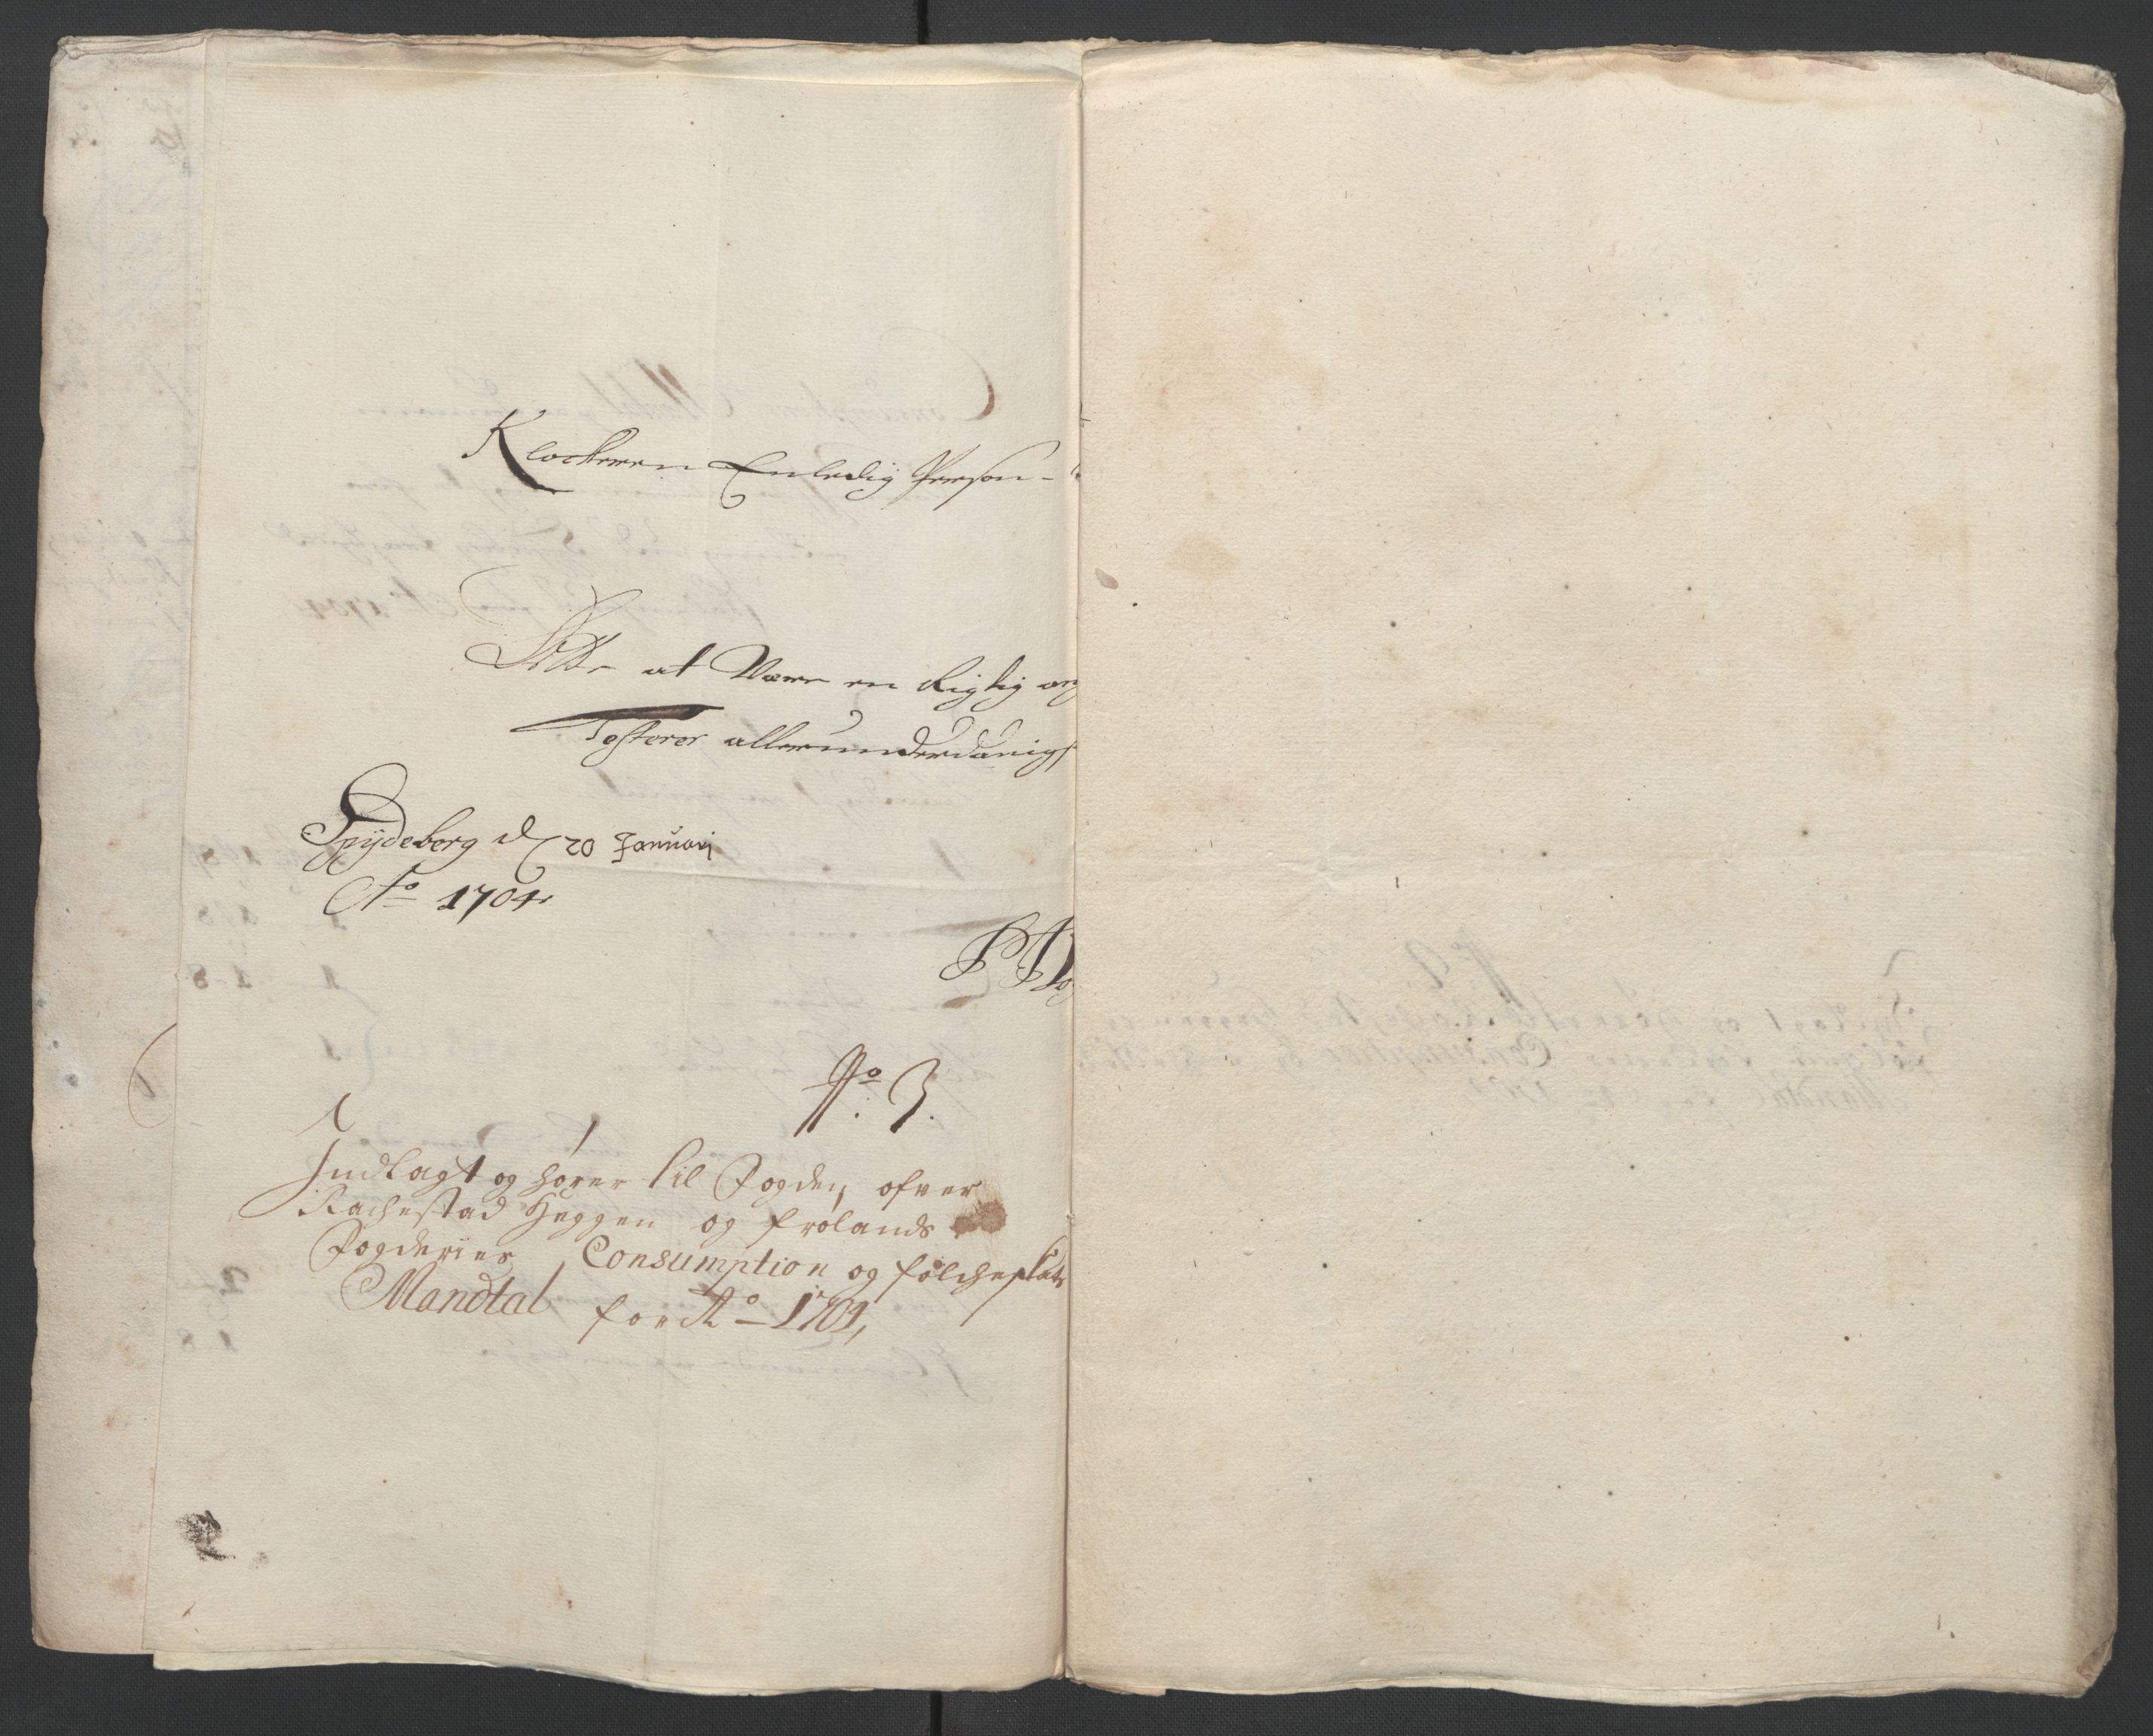 Klocheren Enledig Person -
Dette at Være en Rigtig
Testerer allerunderdanigst
Spydeberg d 20 Januari
Ao 1704
No 3.
Indlagt og hører til Fogden ofver
Rachestad Heggen og Frølands
Fogderies Consumption og folcheskats
Mandtal for Ao 1704,